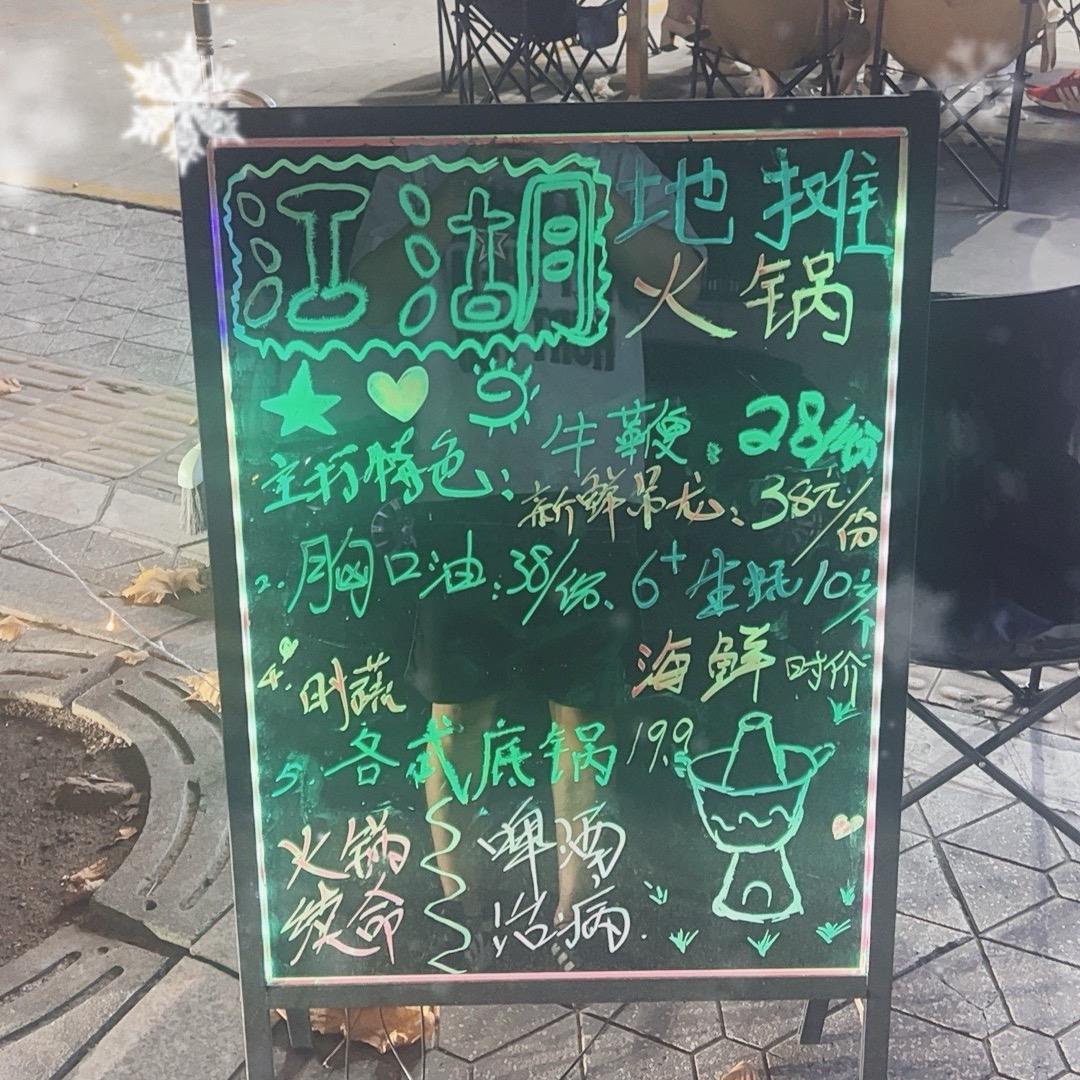 江湖 地摊
火锅
主打特色: 牛鞭: 28/份
新鲜吊龙: 38元/份
2. 胸口油: 38/份、 6+生蚝10元/个
4. 时蔬 海鲜 时价
5. 各式底锅 19.9
火锅 啤酒
续命 治病.